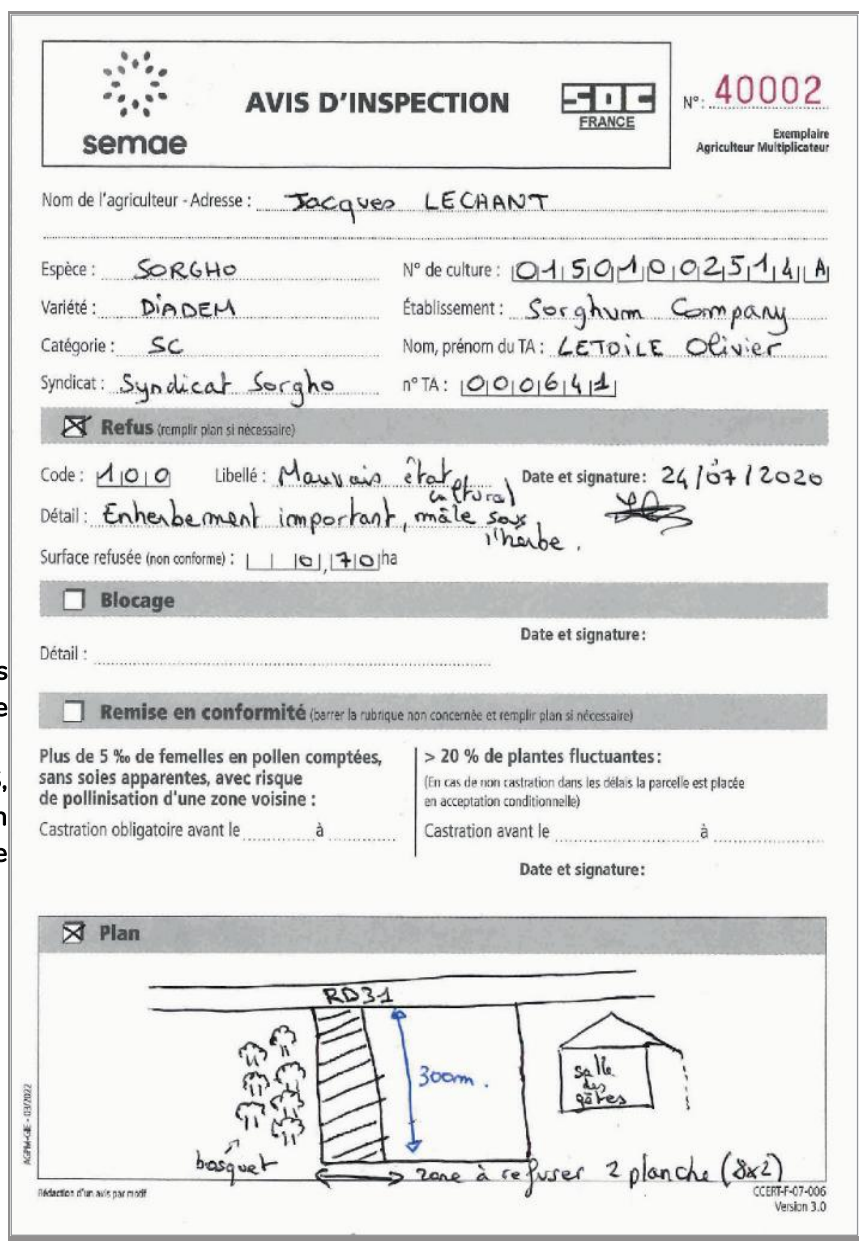 semae
AVIS D'INSPECTION
SOC
FRANCE
N°: 40002
Exemplaire
Agriculteur Multiplicateur
Nom de l'agriculteur - Adresse : Jacques LECHANT
Espèce : SORGHO
N° de culture : 01501002514A
Variété : DIADEM
Établissement : Sorghum Company
Catégorie : SC
Nom, prénom du TA : LETOILE Olivier
Syndicat : Syndicat Sorgho
n° TA : 000641
Refus (remplir plan si nécessaire)
Code : 100 Libellé : Mauvais état cultural Date et signature: 24/07/2020
Détail : Enherbement important, mâle sous l'herbe.
Surface refusée (non conforme) : 0,70 ha
Blocage
Date et signature:
Détail :
Remise en conformité (barrer la rubrique non concernée et remplir plan si nécessaire)
Plus de 5 ‰ de femelles en pollen comptées,
sans soies apparentes, avec risque
de pollinisation d'une zone voisine :
Castration obligatoire avant le à
> 20 % de plantes fluctuantes:
(En cas de non castration dans les délais la parcelle est placée
en acceptation conditionnelle)
Castration avant le à
Date et signature:
Plan
RD31
300m.
salle
des
fêtes
bosquet
zone à refuser 2 planche (8x2)
AGPM-GIE - 03/2022
Rédaction d'un avis par motif
CCERT-F-07-006
Version 3.0
s
e
,
n
e